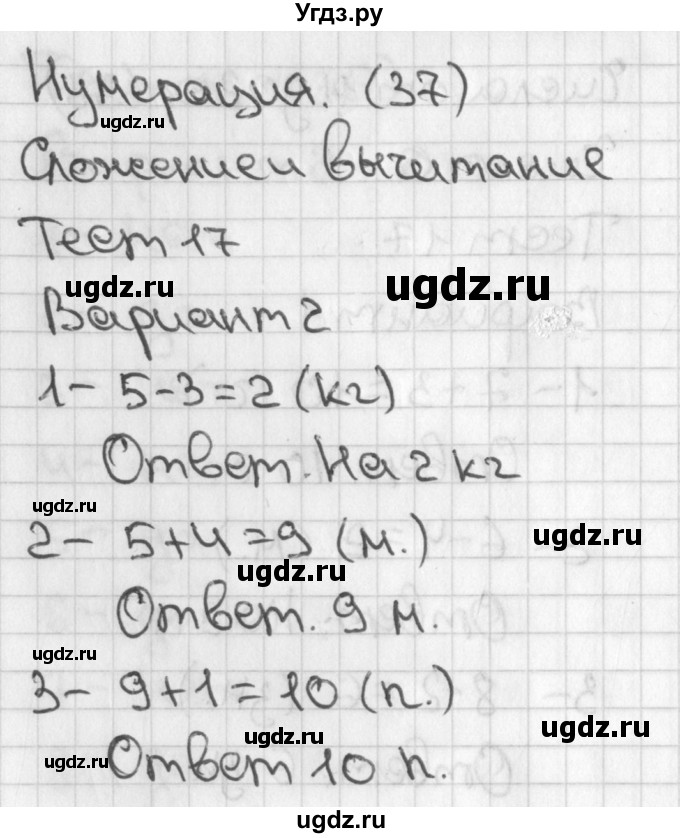 Угдз.ру
Нумерация. (37)
ugdz.ru
Сложение и вычитание
Тест 17
ugdz.ru
ugdz.ru
Вариант 2
1 - 5-3=2 (кг)
Ответ. На 2 кг
ugdz.ru
2 - 5+4=9 (м.)
ugdz.ru
ugdz.ru
Ответ. 9 м.
ugdz.ru
3 - 9+1=10 (п.)
ugdz.ru
ugdz.ru
ugdz.ru
Ответ 10 п.
ugdz.ru